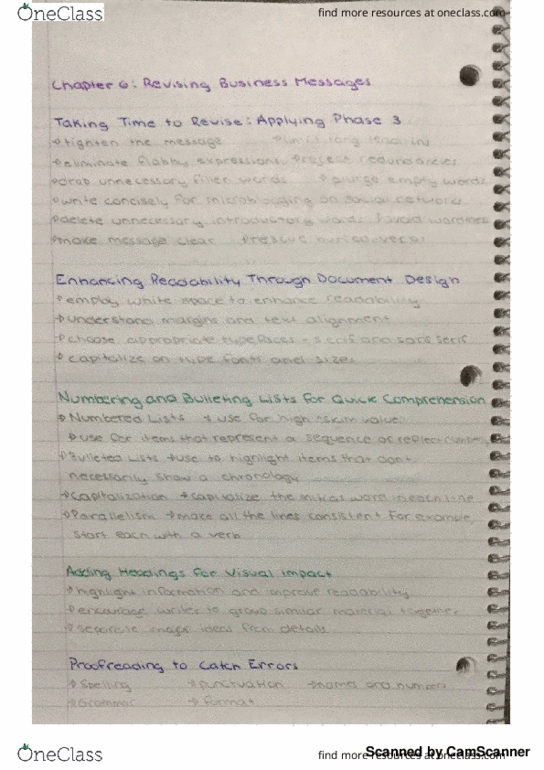 OneClass
find more resources at oneclass.com
Chapter 6: Revising Business Messages
Taking Time to Revise: Applying Phase 3
→tighten the message →limit long lead ins
→eliminate flabby expressions →reject redundancies
→drop unnecessary filler words →purge empty words
→write concisely for microblogging on social networks
→delete unnecessary introductory words →avoid wordiness
→make message clear
Enhancing Readability Through Document Design
→employ white space to enhance readability
→understand margins and text alignment
→choose appropriate typefaces - serif and sans serif
→capitalize on type fonts and sizes
Numbering and Bulleting Lists for Quick Comprehension
→Numbered Lists →use for high "skim value"
→use for items that represent a sequence or reflect numbers
→Bulleted Lists →use to highlight items that don't
necessarily show a chronology
→Capitalization →capitalize the initial word in each line
→Parallelism →make all the lines consistent for example,
start each with a verb
Adding Headings for Visual Impact
→highlight information and improve readability
→encourage writer to group similar material together
→separate major ideas from details
Proofreading to Catch Errors
→Spelling →punctuation →names and numbers
→Grammar →format
OneClass
find more resources at oneclass.com
Scanned by CamScanner